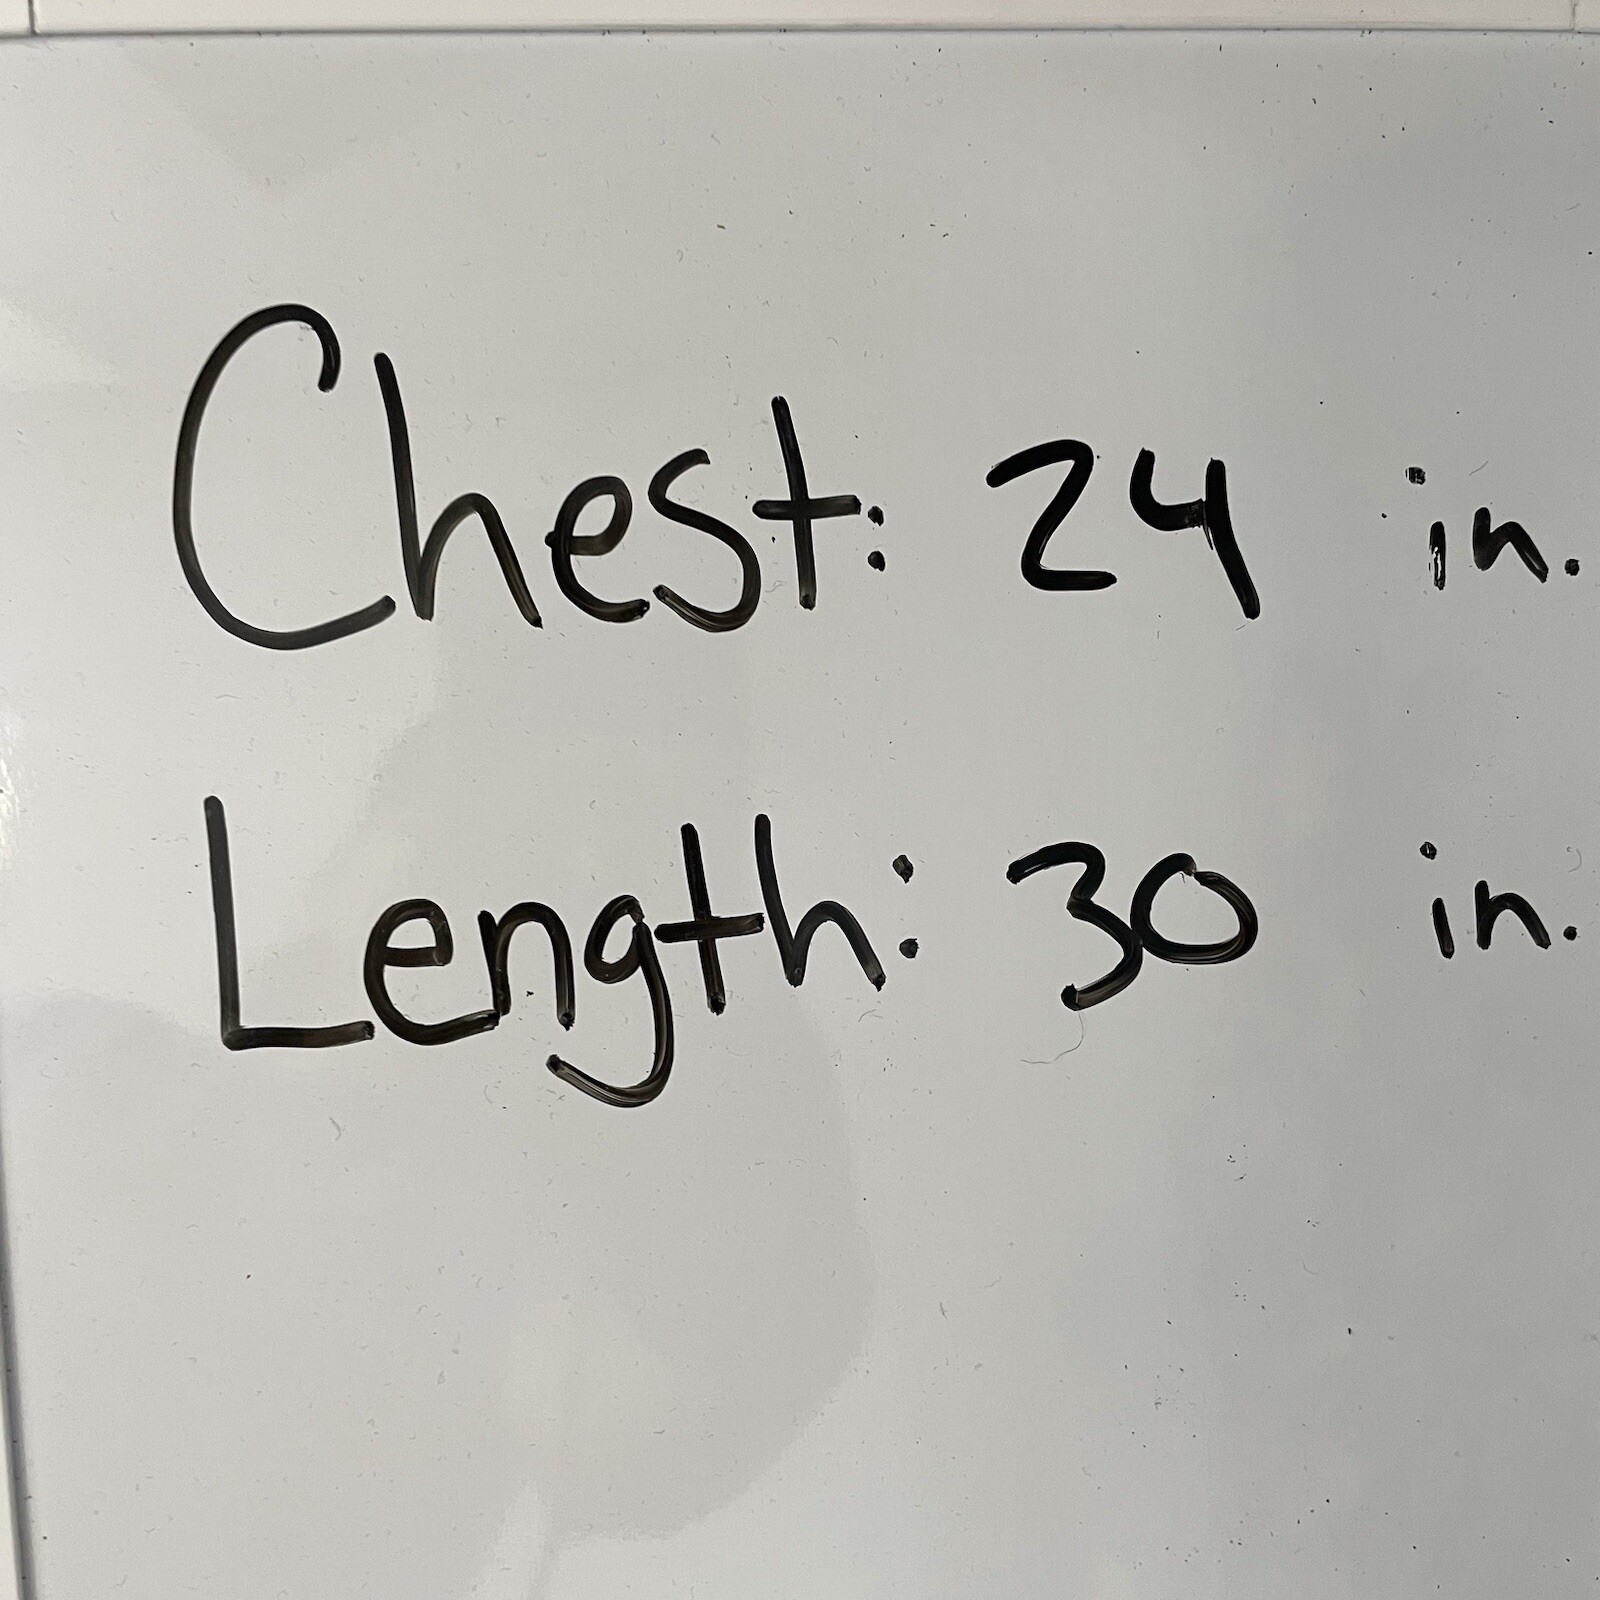 Chest: 24 in.
Length: 30 in.